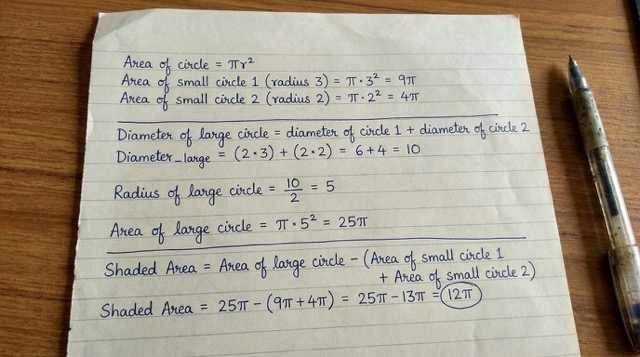 Area of circle = πr²
Area of small circle 1 (radius 3) = π·3² = 9π
Area of small circle 2 (radius 2) = π·2² = 4π
Diameter of large circle = diameter of circle 1 + diameter of circle 2
Diameter_large = (2·3) + (2·2) = 6+4 = 10
Radius of large circle = 10/2 = 5
Area of large circle = π·5² = 25π
Shaded Area = Area of large circle - (Area of small circle 1
+ Area of small circle 2)
Shaded Area = 25π - (9π+4π) = 25π-13π = 12π